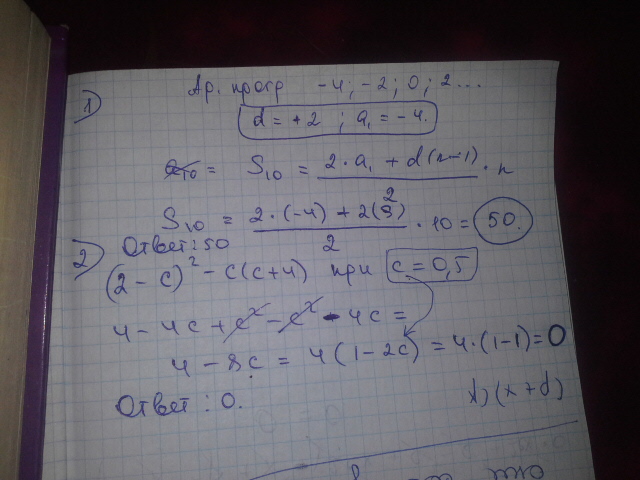 1) Ар. прогр -4; -2; 0; 2 ...
d = +2 ; a₁ = -4.
a₁₀ = S₁₀ = (2·a₁ + d(n-1)) / · n
S₁₀ = (2·(-4) + 2(9)) / 2 · 10 = 50.
Ответ: 50
2) (2-c)² - c(c+4) при c = 0,5
4 - 4c + c² - c² - 4c =
4 - 8c = 4(1-2c) = 4·(1-1) = 0
Ответ: 0.